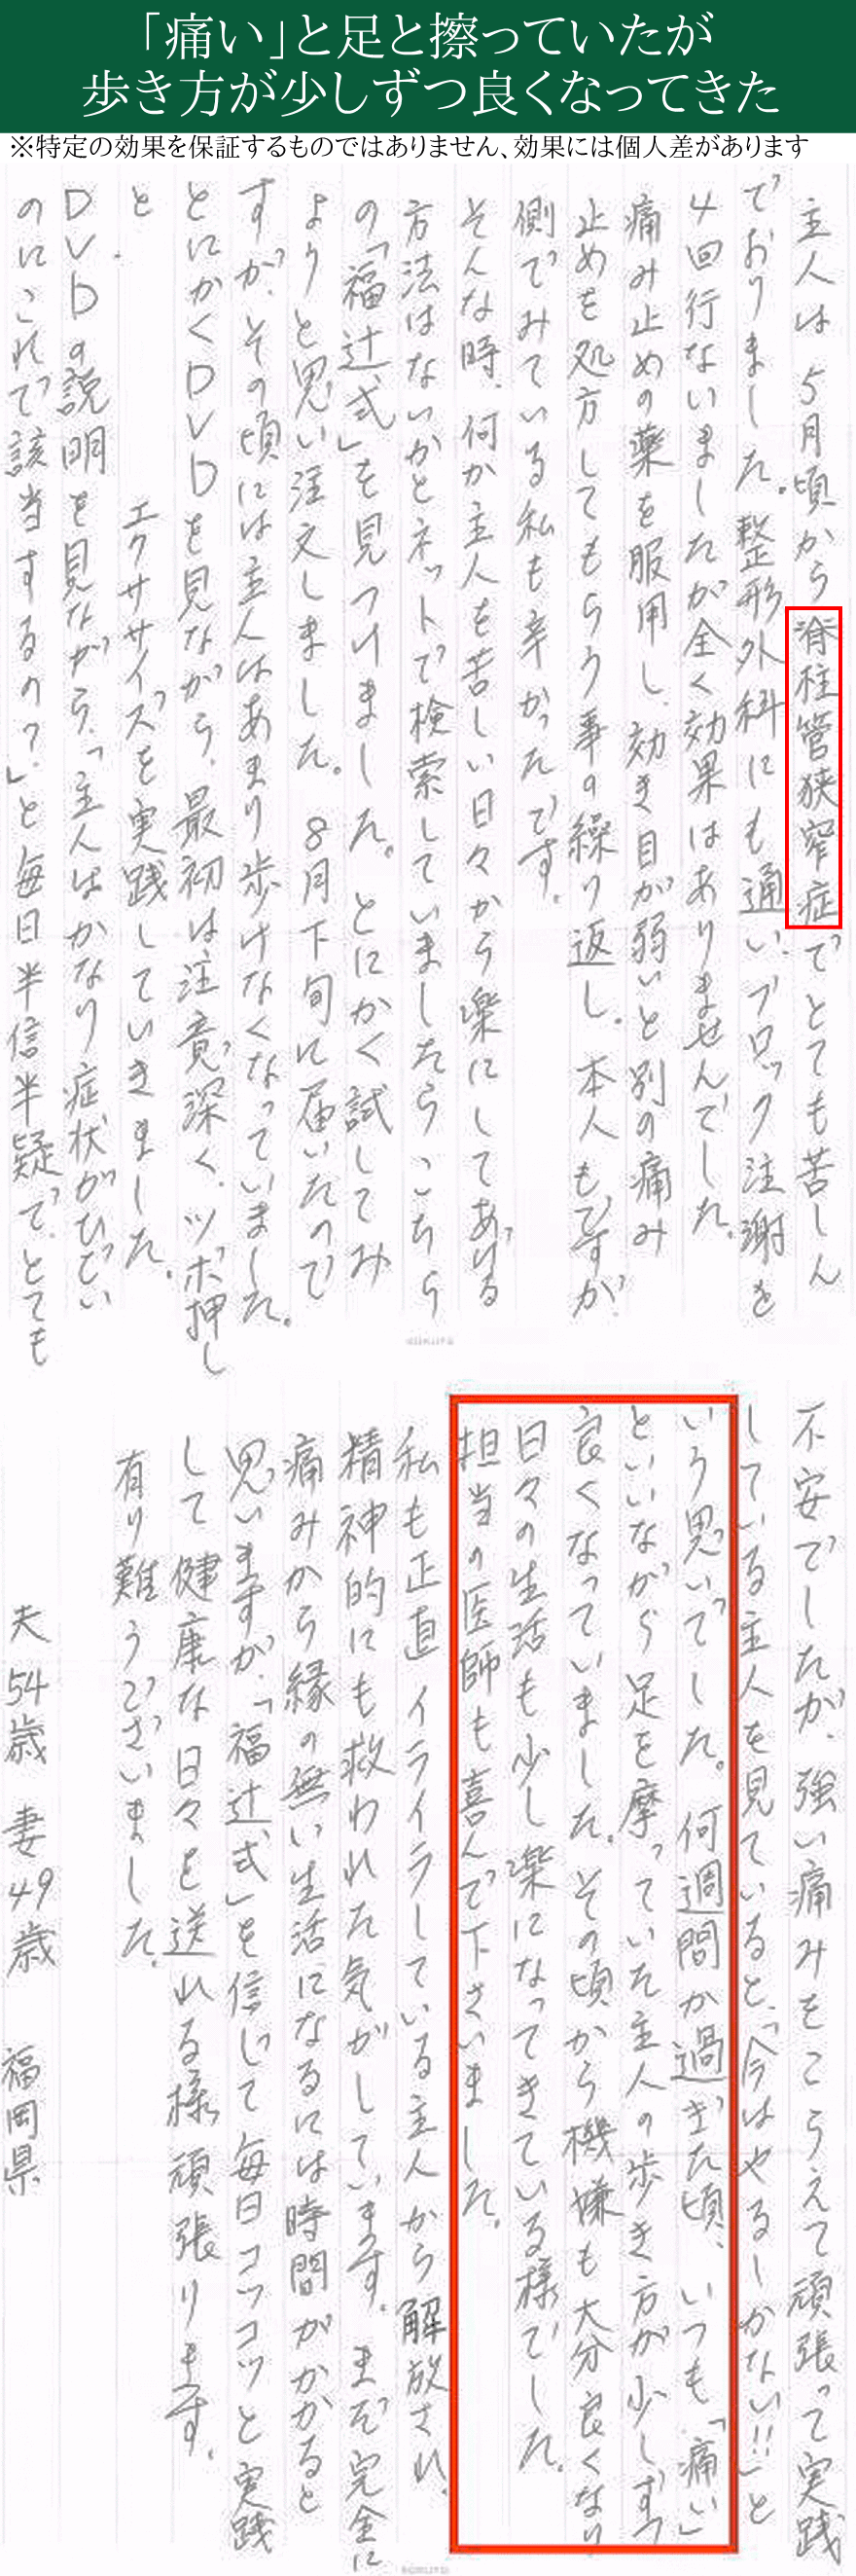 「痛い」と足と擦っていたが
歩き方が少しずつ良くなってきた
※特定の効果を保証するものではありません、効果には個人差があります
主人は5月頃から脊柱管狭窄症でとても苦しん
でおりました。整形外科にも通い、ブロック注謝を
4回行ないましたが全く効果はありませんでした。
痛み止めの薬を服用し、効き目が弱いと別の痛み
止めを処方してもらう事の繰り返し。本人もですが、
側でみている私も辛かったです。
そんな時、何か主人を苦しい日々から楽にしてあげる
方法はないかとネットで検索していましたらこちら
の「福辻式」を見つけました。とにかく試してみ
ようと思い注文しました。8月下旬に届いたので
すが、その頃には主人はあまり歩けなくなっていました。
とにかくDVDを見ながら、最初は注意深く、ツボ押し
と、エクササイズを実践していきました。
DVDの説明を見ながら、「主人はかなり症状がひどい
のにこれで該当するの？」と毎日半信半疑で、とても
不安でしたが、強い痛みをこらえて頑張って実践
している主人を見ていると、「今はやるしかない!!」と
いう思いでした。何週間か過ぎた頃、いつも「痛い」
といいながら足を摩っていた主人の歩き方が少しずつ
良くなっていました。その頃から機嫌も大分良くなり、
日々の生活も少し楽になってきている様でした。
担当の医師も喜んで下さいました。
私も正直イライラしている主人から解放され、
精神的にも救われた気がしています。まだ完全に
痛みから縁の無い生活になるには時間がかかると
思いますが、「福辻式」を信じて毎日コツコツと実践
して健康な日々を送れる様頑張ります。
有り難うございました。
夫54歳 妻49歳 福岡県
KOKUYO
KOKUYO